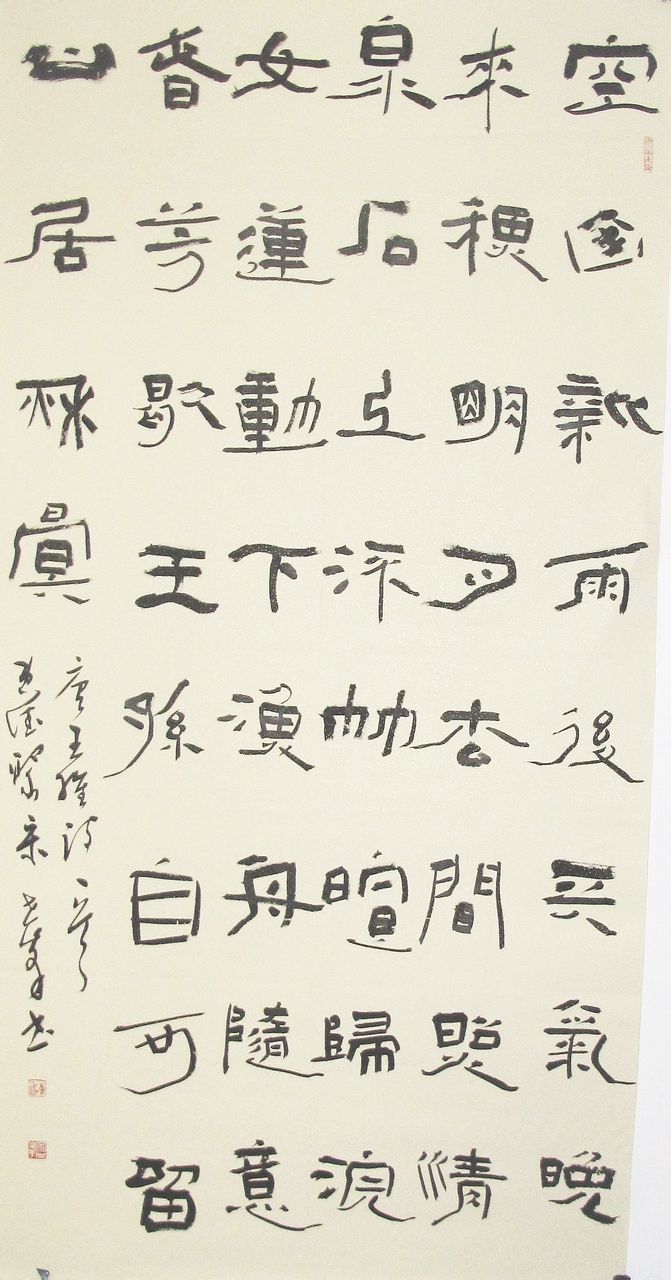 空山新雨後天氣晚
來秋明月松間照清
泉石上流竹喧歸浣
女蓮動下漁舟隨意
春芳歇王孫自可留
山居秋暝
唐王維詩一首
書